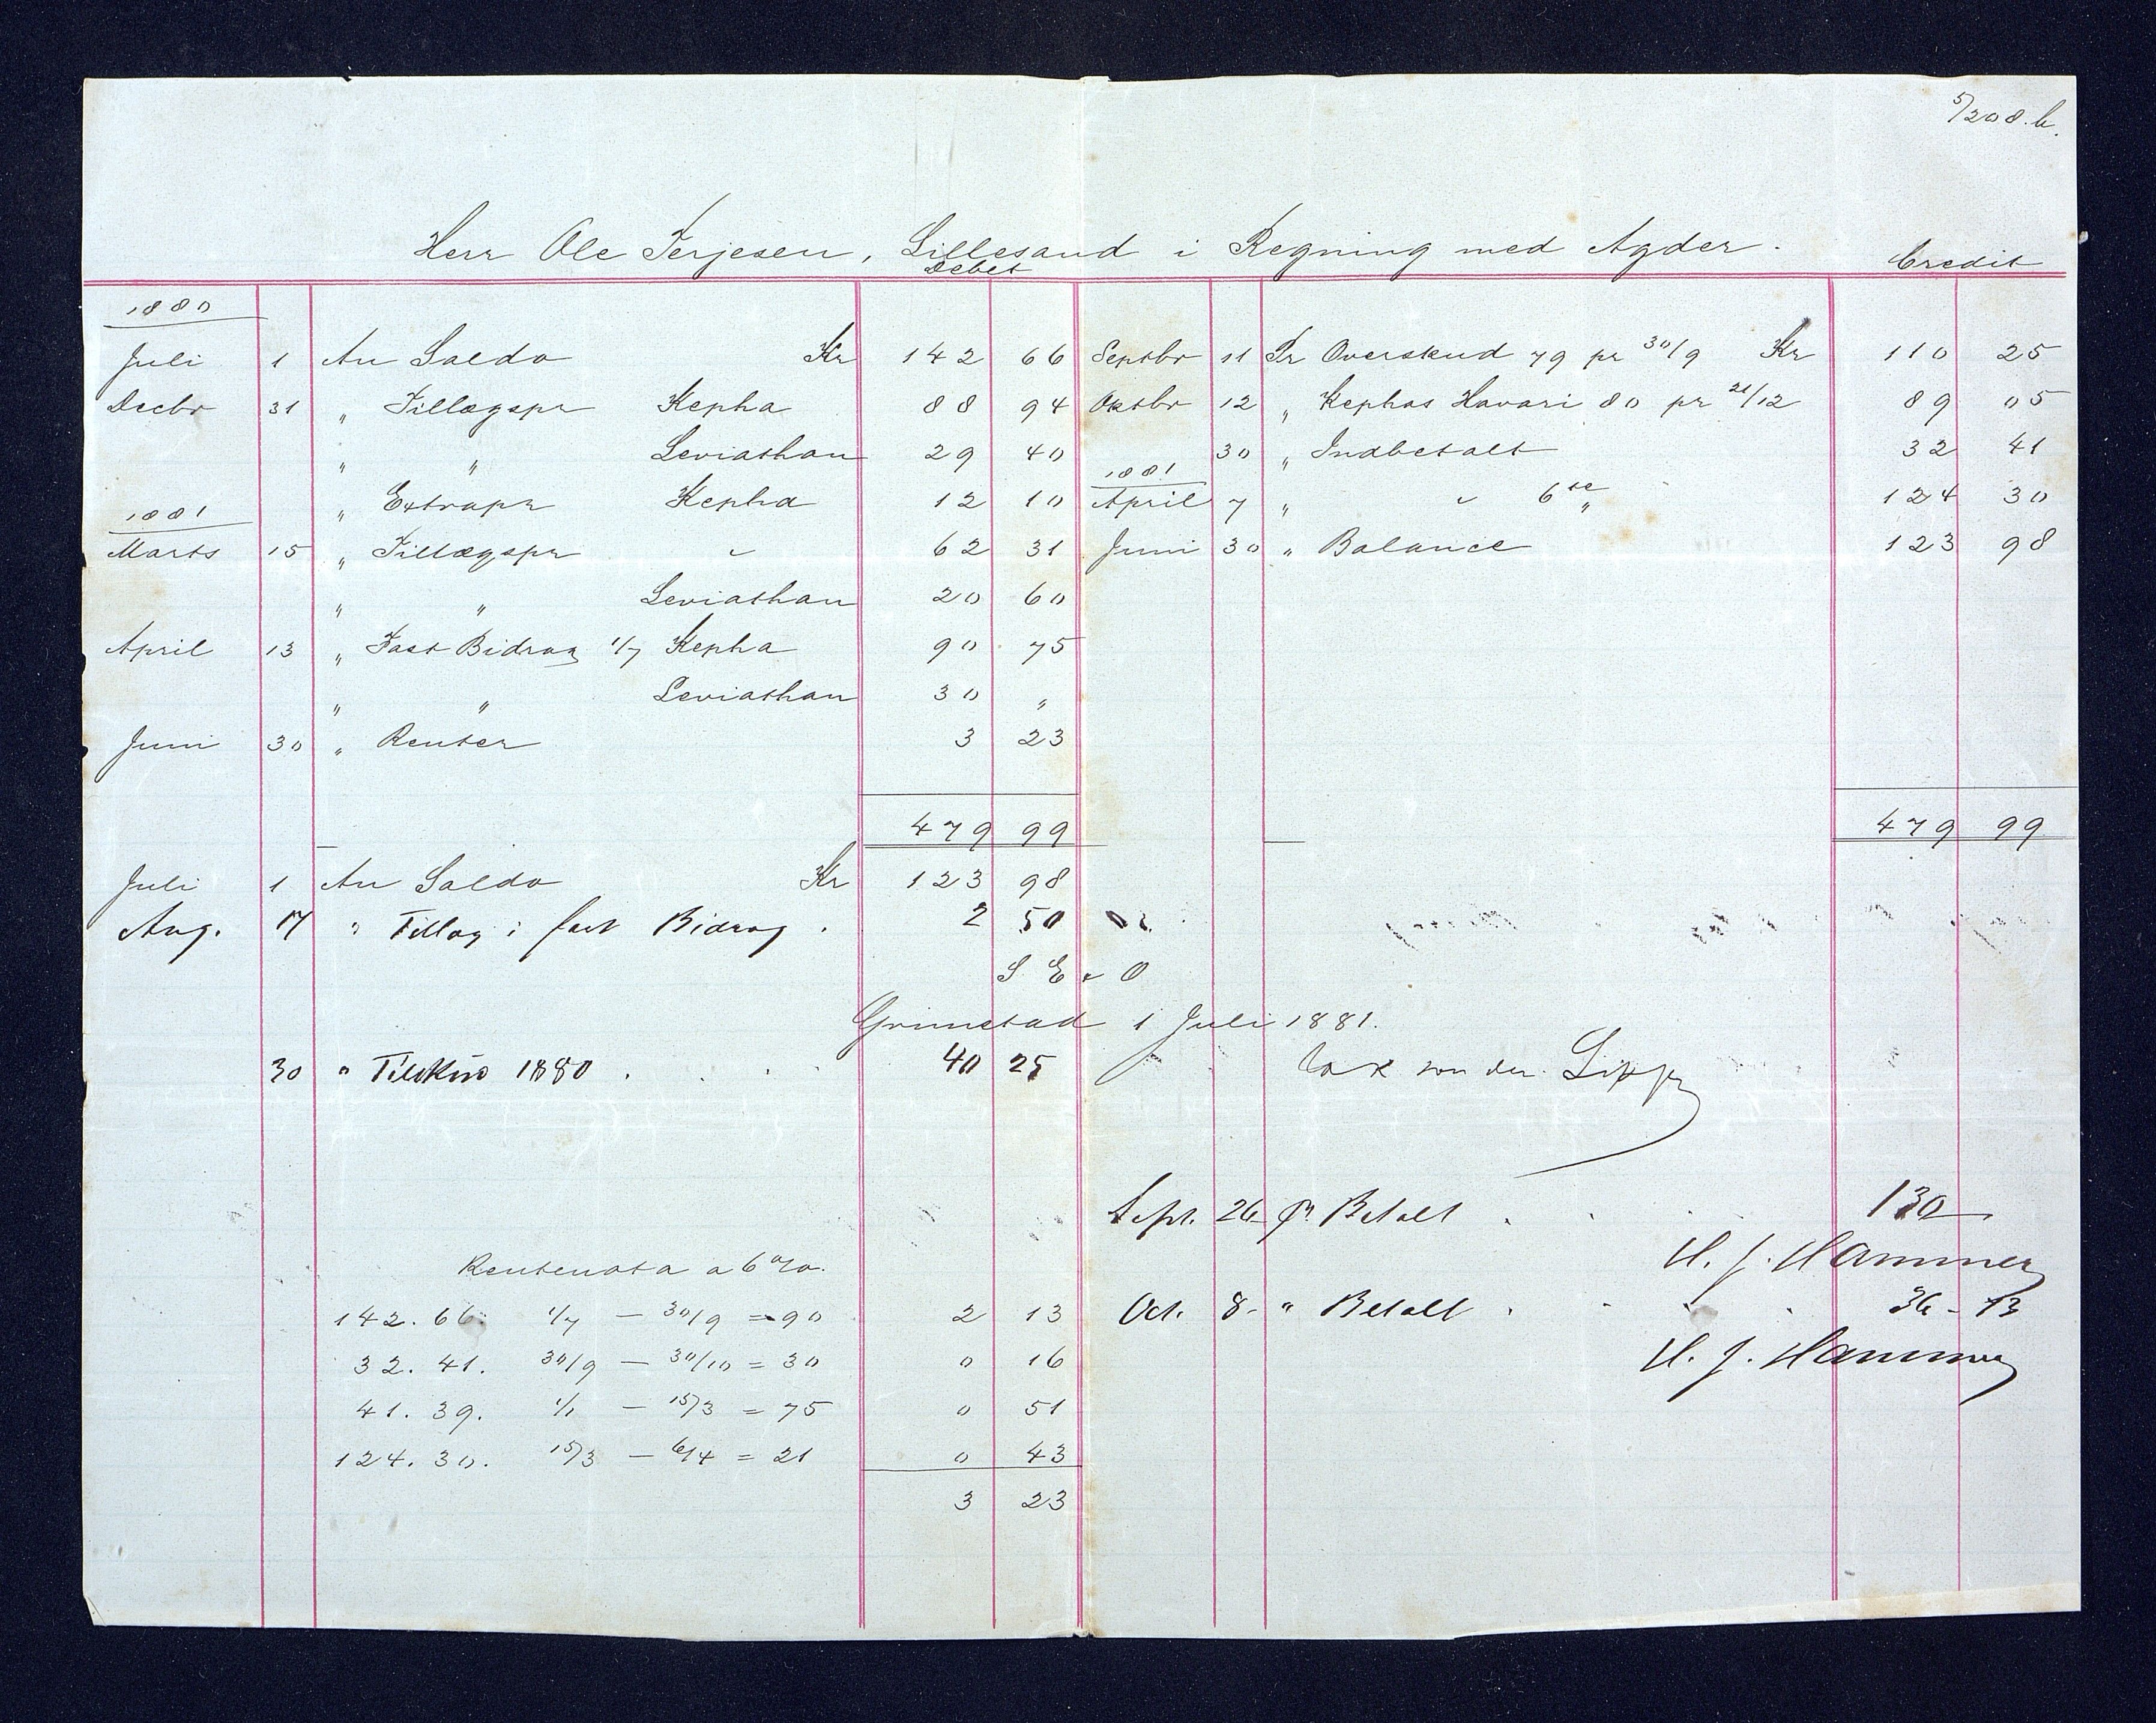 5/208.b.
Herr Ole Terjesen, Lillesand i Regning med Agder.
Debet
Credit
1880
Juli 1 An Saldo Kr 142 66
Decbr 31 " Tillægspr Kepha 88 94
" " Leviathan 29 40
" Extrapr Kepha 12 10
1881
Marts 15 " Tillægspr " 62 31
" " Leviathan 20 60
April 13 " Fast Bidrag 1/7 Kepha 90 75
" " Leviathan 30 "
Juni 30 " Renter 3 23
479 99
Septbr 11 Pr Overskud 79 pr 30/9 Kr 110 25
Oktbr 12 " Kephas Havari 80 pr 21/12 89 05
30 " Indbetalt 32 41
1881
April 7 " " 6te " 124 30
Juni 30 " Balance 123 98
479 99
Juli 1 An Saldo Kr 123 98
Aug. 17 " Tillæg i fast Bidrag . 2 50
S E & O
Grimstad 1 Juli 1881.
30 " Tilskud 1880 . . . . 40 25
von der Lippe
Sept. 26 pr Betalt . . . . 130
H. J. Hammer
Oct. 8. " Betalt . . . . 36 - 73
H. J. Hammer
Rentenota a 6%.
142.66. 1/7 — 30/9 = 90 2 13
32.41. 30/9 — 30/10 = 30 0 16
41.39. 1/1 — 15/3 = 75 0 51
124.30. 15/3 — 6/4 = 21 0 43
3 23